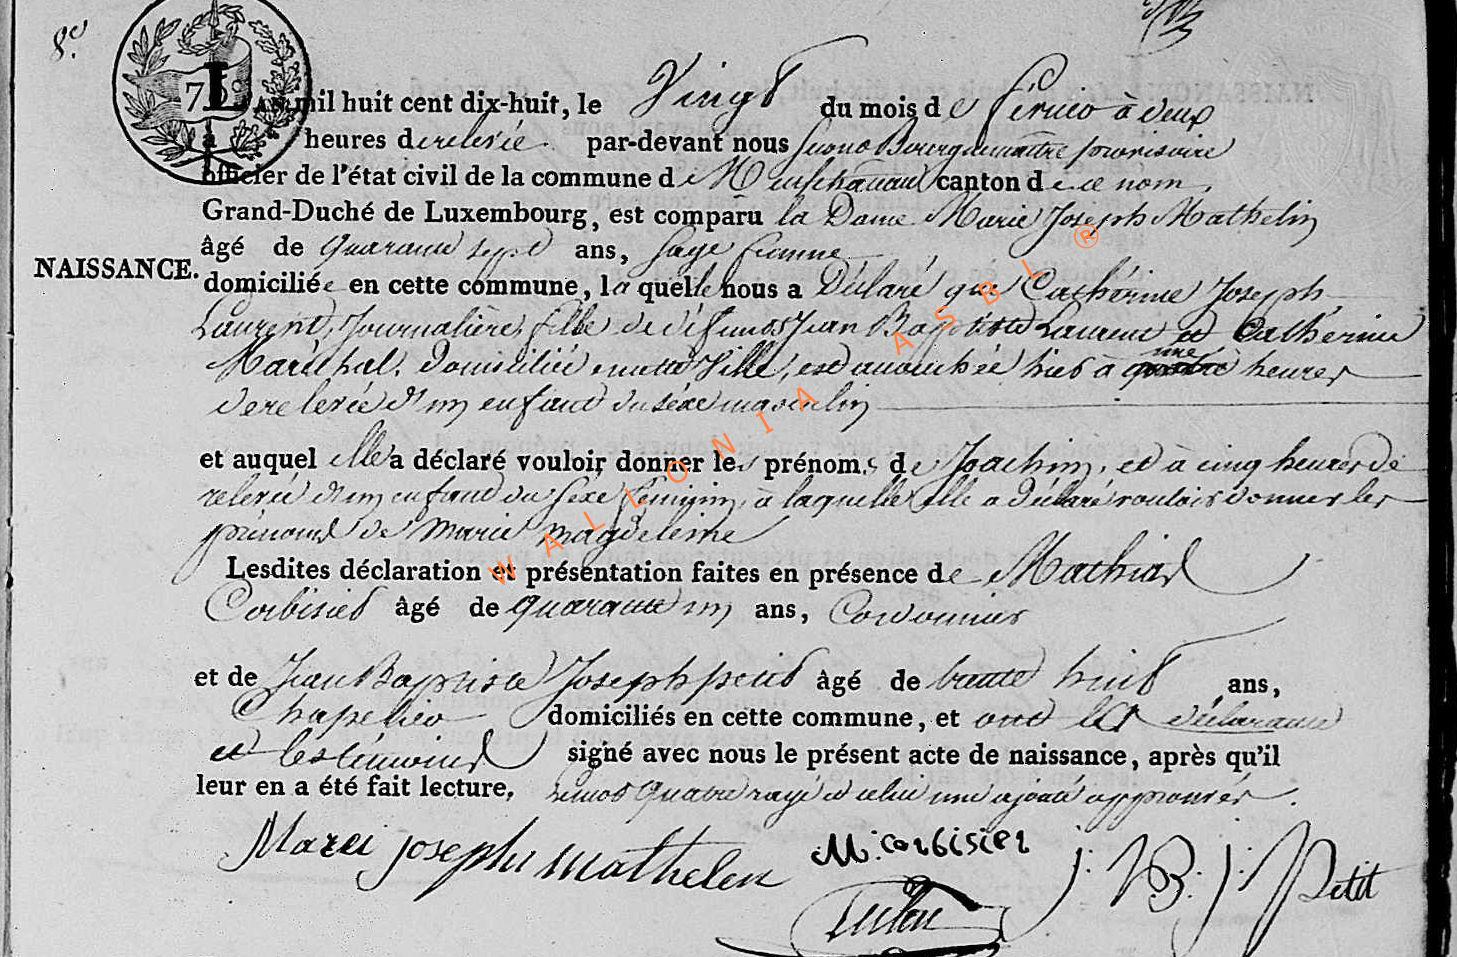 8e.
L'AN mil huit cent dix-huit, le Vingt du mois de février à deux
heures de relevée par-devant nous Bourguemaître provisoire
officier de l'état civil de la commune de Neufchateau canton de ce nom,
Grand-Duché de Luxembourg, est comparu la Dame Marie Joseph Mathelin
âgé de quarante sept ans, sage femme
NAISSANCE.
domiciliée en cette commune, la quelle nous a Déclaré que Cathérine Joseph
Laurent, Journalière, fille de défunts Jean Baptiste Laurent et Cathérine
Maréchal, domiciliée en cette Ville, est accouchée hier à quatre une heures
de relevée d'un enfant du séxe masculin
et auquel elle a déclaré vouloir donner les prénoms de Joachim, et à cinq heures de
relevée d'un enfant du sexe féminin, à laquelle elle a déclaré vouloir donner les
prénoms de Marie Magdeleine
Lesdites déclaration et présentation faites en présence de Mathias
Corbisier âgé de quarante un ans, Cordonnier
et de Jean Baptiste Joseph petit âgé de trente huit ans,
Chapelier domiciliés en cette commune, et ont les déclarante
et les témoins signé avec nous le présent acte de naissance, après qu'il
leur en a été fait lecture, le mot quatre rayé et celui une ajouté approuvés.
Marei joseph mathelen
M. corbisier
J. B. J. Petit
WALLONIA ASBL ®